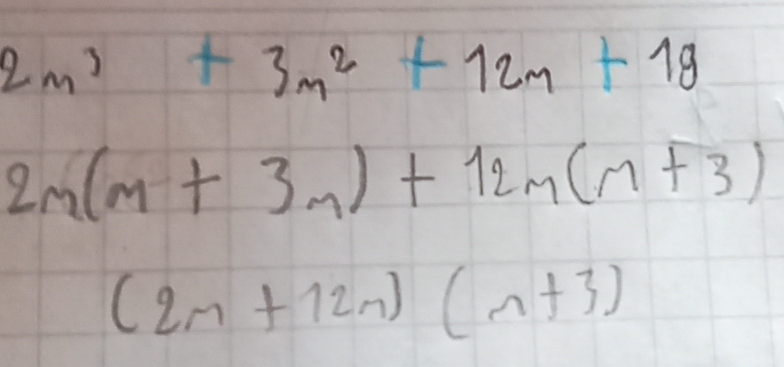 2m³ + 3m² + 12m + 18
2m(m + 3m) + 12m(m + 3)
(2m + 12m) (m + 3)